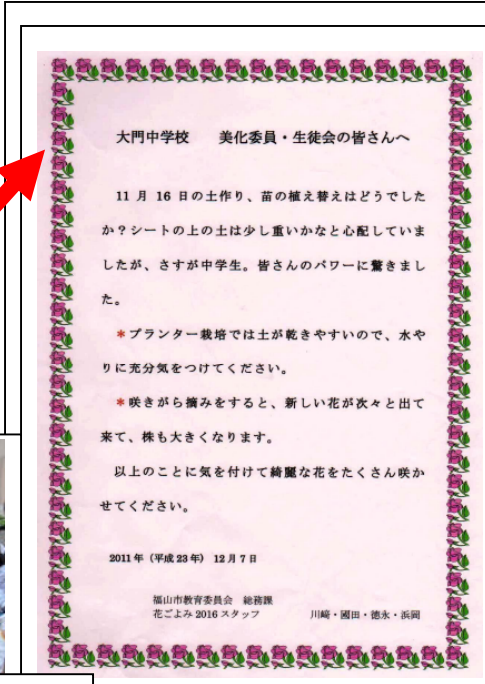 大門中学校　　美化委員・生徒会の皆さんへ
11 月 16 日の土作り、苗の植え替えはどうでした
か？シートの上の土は少し重いかなと心配していま
したが、さすが中学生。皆さんのパワーに驚きまし
た。
＊プランター栽培では土が乾きやすいので、水や
りに充分気をつけてください。
＊咲きがら摘みをすると、新しい花が次々と出て
来て、株も大きくなります。
以上のことに気を付けて綺麗な花をたくさん咲か
せてください。
2011年（平成23年）12月7日
福山市教育委員会　総務課
花ごよみ2016スタッフ　　川﨑・國田・徳永・浜岡